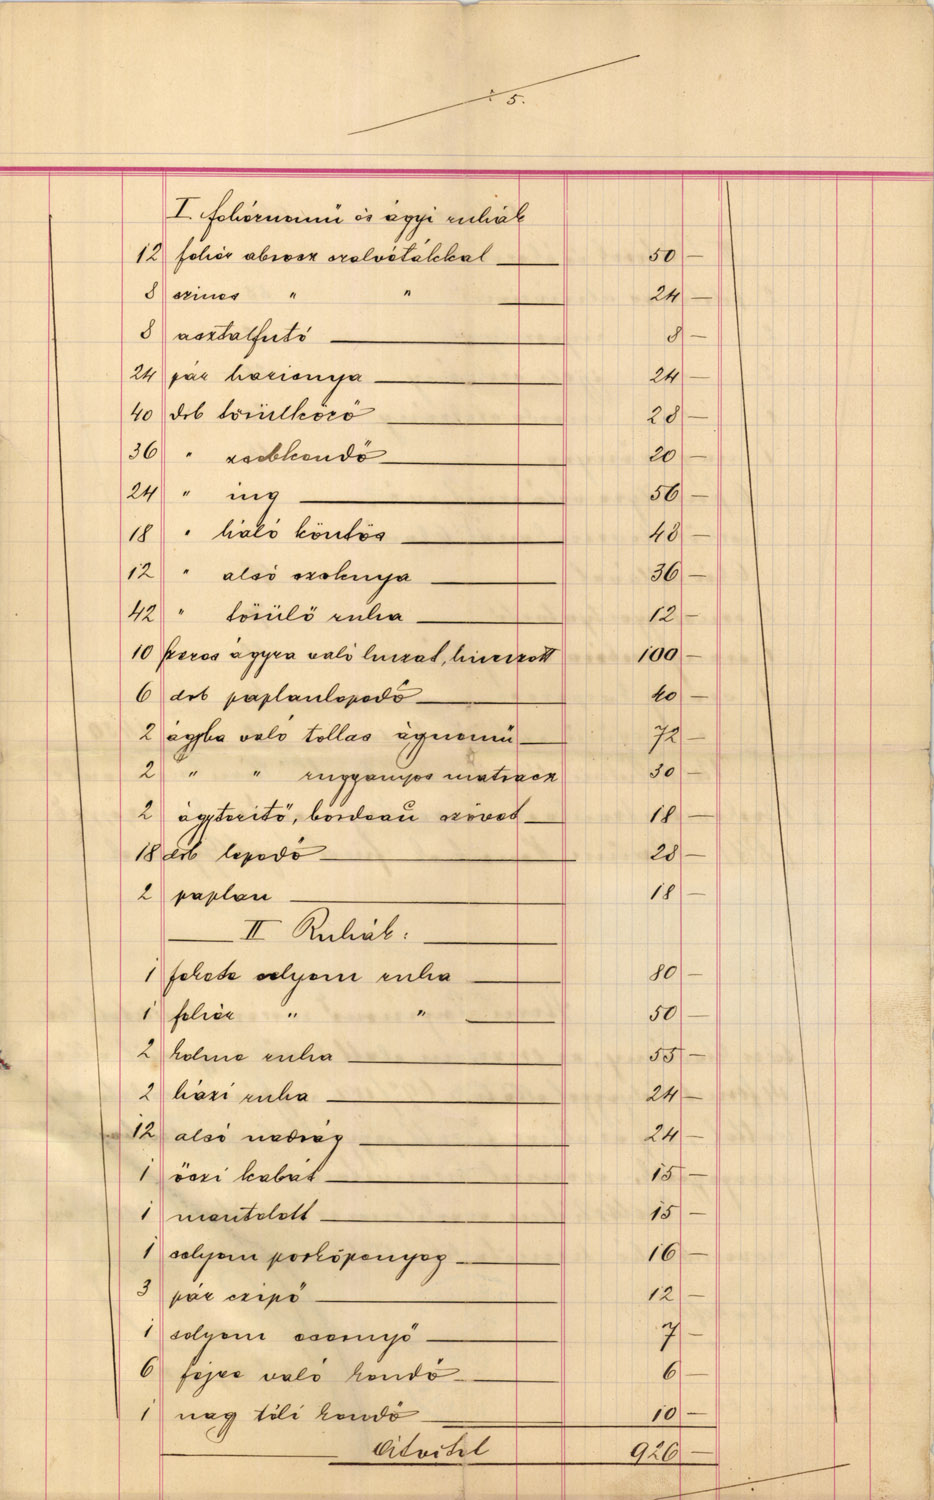 ÷ 5.
I. fehérnemü és ágyi ruhák
12 fehér abrosz szalvétákkal 50 —
8 szines " " 24 —
8 asztalfutó 8 —
24 pár harisnya 24 —
40 drb törülköző 28 —
36 " zsebkendő 20 —
24 " ing 56 —
18 " háló köntös 48 —
12 " alsó szoknya 36 —
42 " törülő ruha 12 —
10 ágyra való huzat, 100 —
6 drb paplanlepedő 40 —
2 ágyba való tollas ágnemü 72 —
2 " " rugganyos matracz 30 —
2 ágyteritő, bordeau szövet 18 —
18 drb lepedő 28 —
2 paplan 18 —
II Ruhák:
1 fekete selyem ruha 80 —
1 fehér " " 50 —
2 kelme ruha 55 —
2 házi ruha 24 —
12 alsó nadrág 24 —
1 őszi kabát 15 —
1 mantelett 15 —
1 selyem porköpenyeg 16 —
3 pár czipő 12 —
1 selyem esernyő 7 —
6 fejre való kendő 6 —
1 nag téli kendő 10 —
Átvitel 926 —